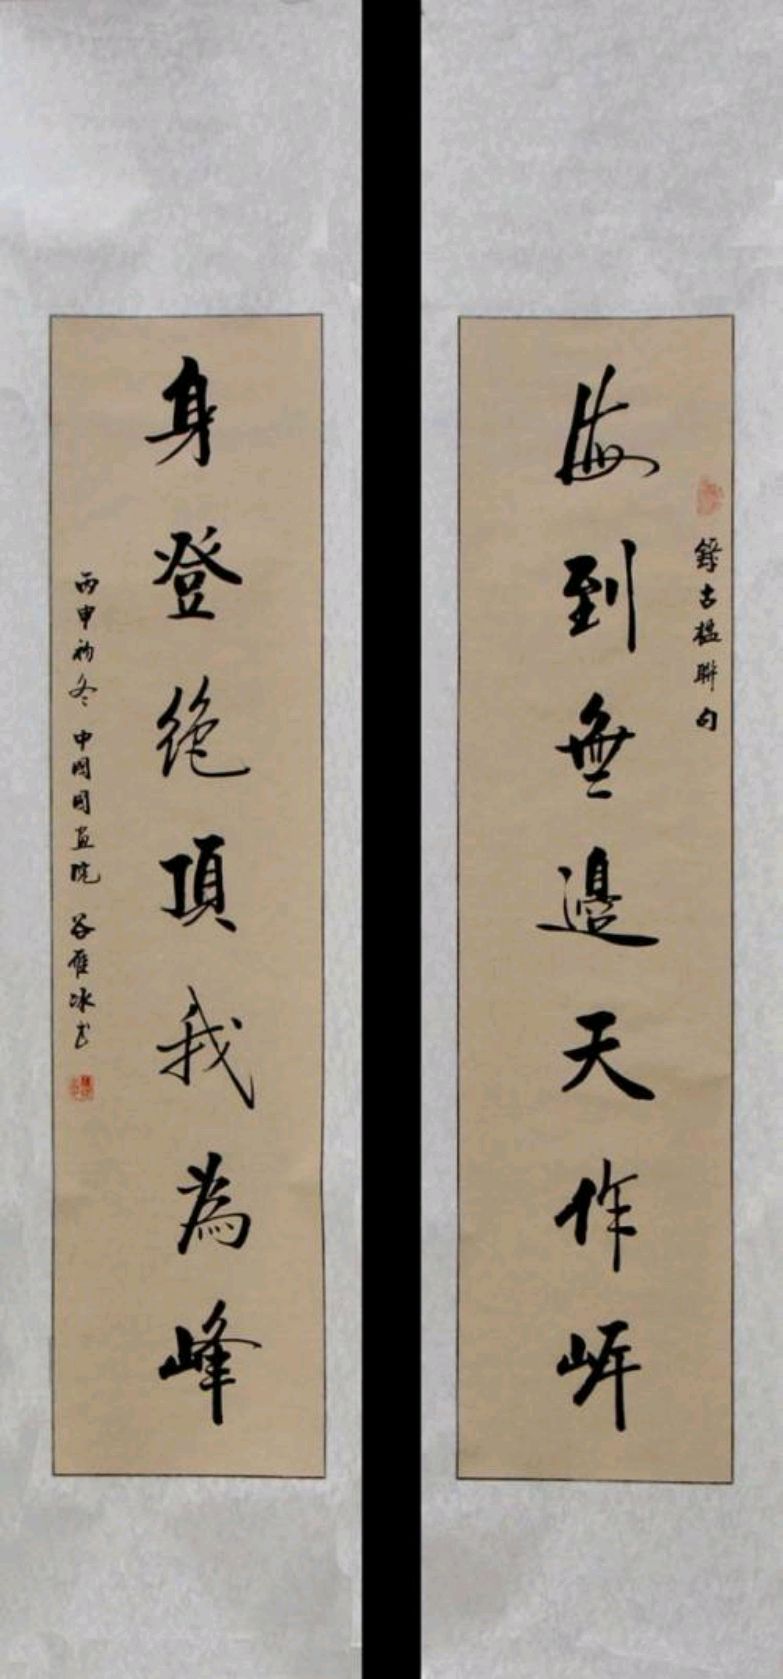 海到無邊天作岸
錄古楹聯句
身登絕頂我為峰
丙申初冬 中國國畫院 谷雁冰書